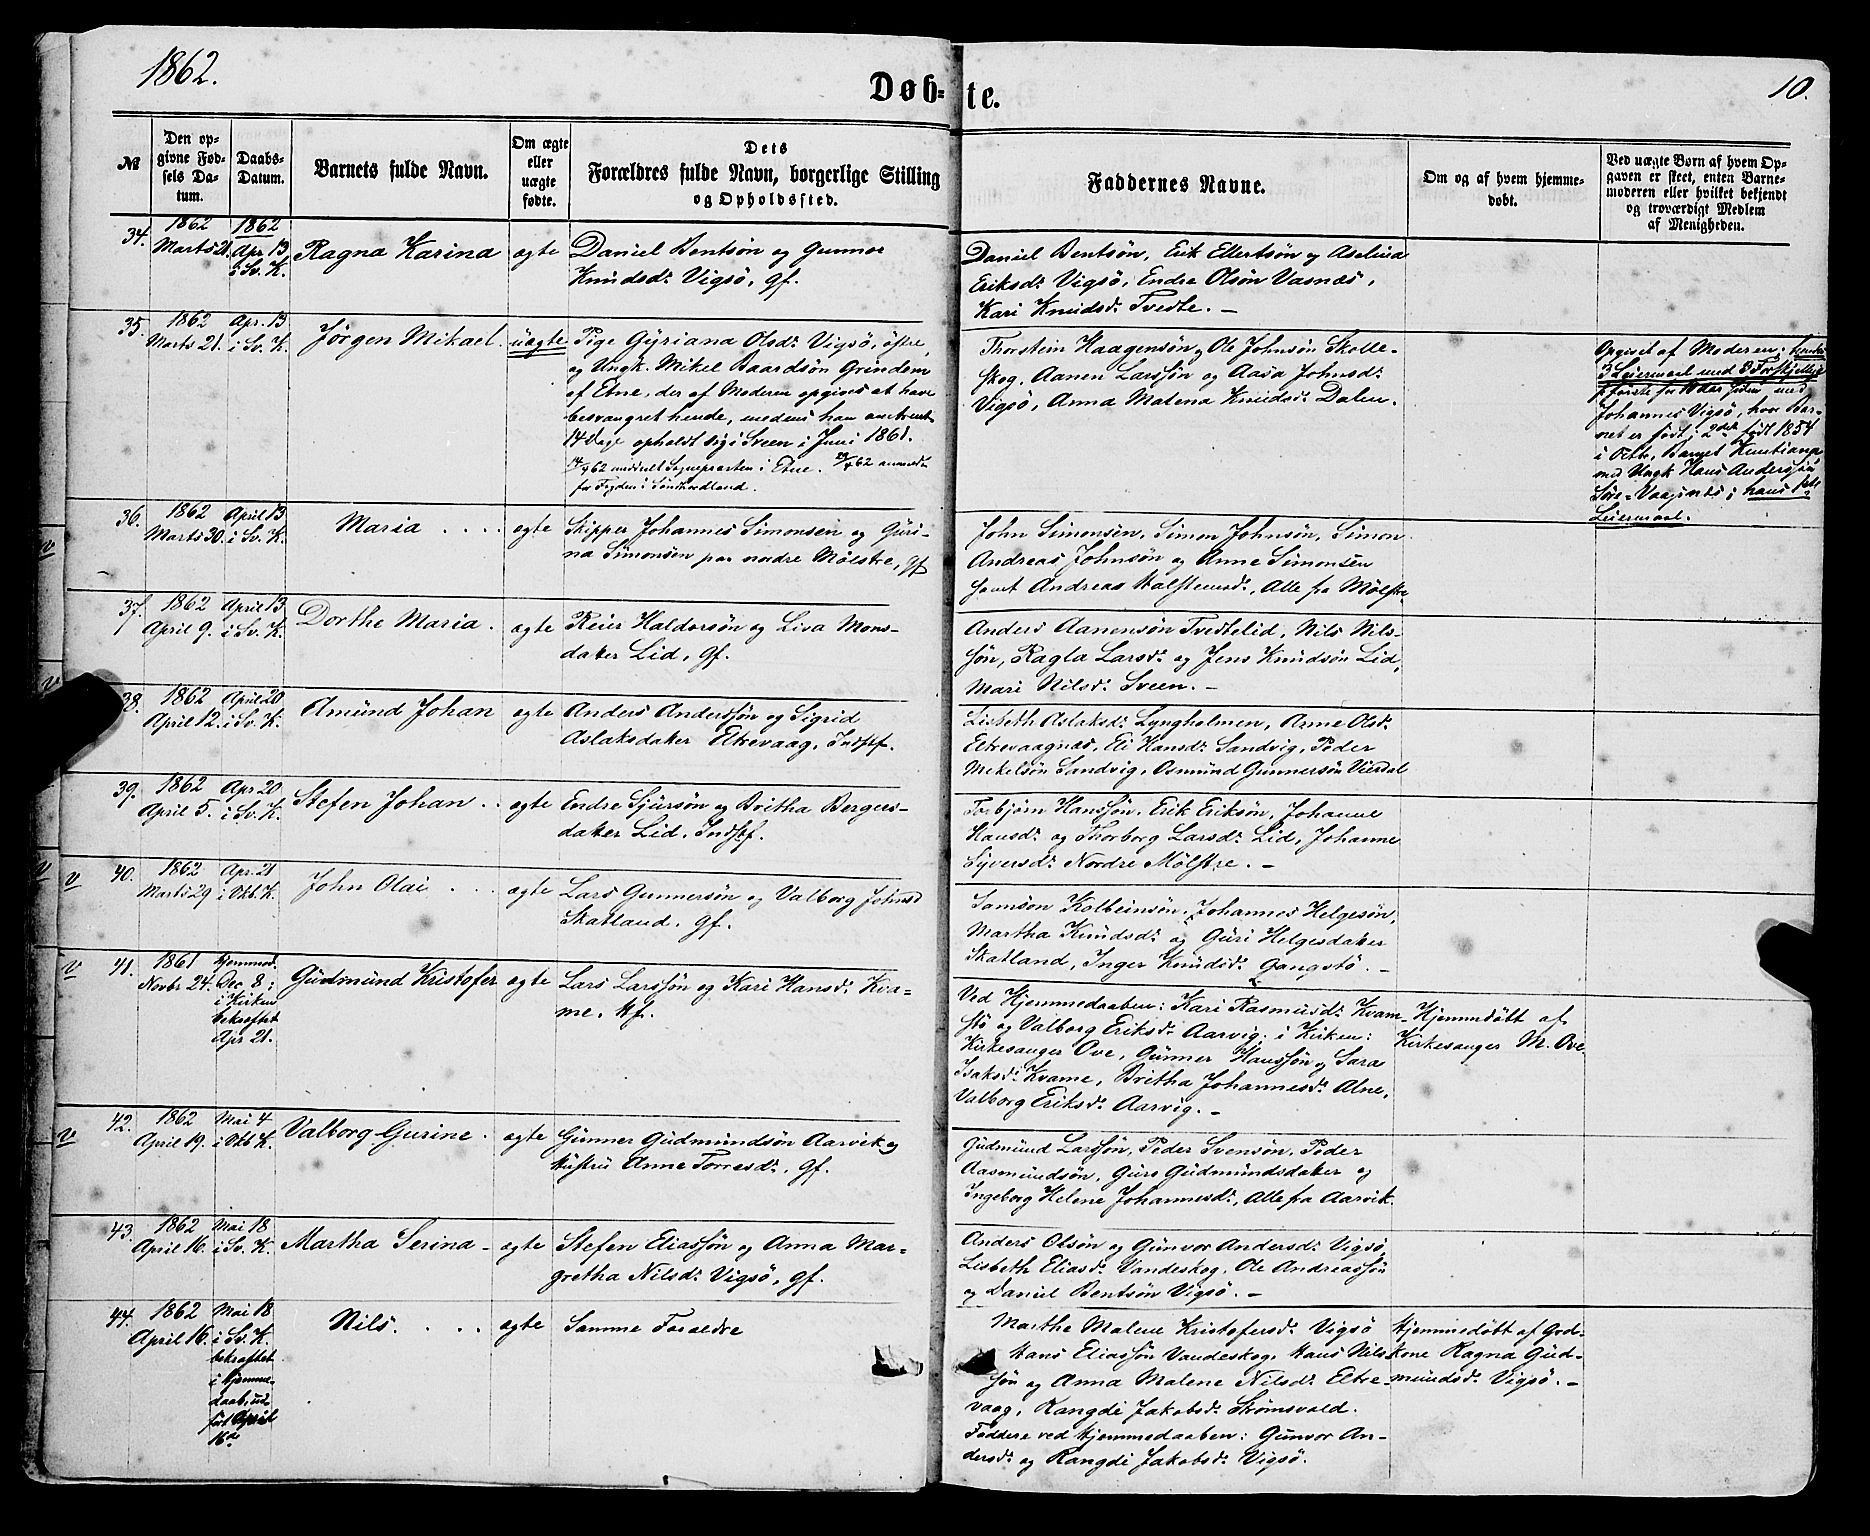 1862.
Døb-te.
10.
№
Den op-
givne Fød-
sels Da-
tum.
Daabs-
Datum.
Barnets fulde Navn.
Om ægte
eller
uægte
fødte.
Dets
Forældres fulde Navn, borgerlige Stilling
og Opholdssted.
Faddernes Navne.
Om og af hvem hjemme-
døbt.
Ved uægte Børn af hvem Op-
gaven er skeet, enten Barne-
moderen eller hvilket bekjendt
og troværdigt Medlem
af Menigheden.
34.
1862
Marts 21.
1862
Apr. 13
i Sv. K.
Ragna Karina
ægte
Daniel Bentsøn og Gunnor
Knudsdr. Vigsø, Gf.
Daniel Bentsøn, Erik Ellertsøn og Aselina
Eriksdr. Vigsø, Endre Olsøn Vasnæs,
Kari Knudsdr. Tvedte. –
35.
1862
Marts 21.
Apr. 13
i Sv. K.
Jørgen Mikael.
uægte
Pige Gyriana Olsdr. Vigsø, østre,
og Ungk. Mikel Baardsøn Grindem
af Etne, der af Moderen opgives at have
besvangret hende, medens han omtrent
14 Dage opholdt sig i Sveen i Juni 1861.
62 meddelt Sognepræsten i Etne. 62 anmeldt
for Fogden i Søndhordland.
Thorstein Haagensøn, Ole Johnsøn Skolle-
skog, Aanen Larssøn og Aasa Johnsdr.
Vigsø, Anna Malena Knudsdr. Dalen.
Opgivet af Moderen; hendes
3 Leiermaal med 3 Forskjellige
første for 11 Aar siden med
Johannes Vigsø, hvor Bar-
net er født; 2det født 1854
i Octbr., Barnet Kristiane
med Ungk. Hans Anderssøn
Søre-Vaagenes; hans
Leiermaal.
36.
1862
Marts 30.
April 13
i Sv. K.
Maria . . . .
ægte
Skipper Johannes Simonsen og Guri-
na Simonsen paa nordre Mølstre, Gf
John Simonsen, Simon Johnsøn, Simon
Andreas Johnsøn og Anne Simonsen
samt Andreas Halstensdr., Alle fra Mølstre
37.
1862
April 9.
April 13
i Sv. K.
Dorthe Maria.
ægte
Reier Haldorsøn og Liva Mons-
datter Lid, Gf.
Anders Aanensøn Tvedtelid, Nils Nils-
søn, Ragla Larsdr. og Jens Knudsøn Lid,
Mari Nilsdr. Sveen. –
38.
1862
April 12.
April 20
i Sv. K.
Amund Johan
ægte
Anders Anderssøn og Sigrid
Aslaksdatter Eltrevaag, Indstf.
Lisbeth Aslaksdr. Lyngholmen, Anne Olsdr.
Eltrevaagnæs, Eli Hansdr. Sandvig, Peder
Mekelsøn Sandvig, Osmund Gunnersøn Vierdal
39.
1862
April 5.
Apr 20
i Sv. K.
Stefen Johan . .
ægte
Endre Sjursøn og Britha Berges-
datter Lid, Indstf.
Torbjørn Hanssøn, Erik Eriksøn, Johanne
Hansdr. og Thorborg Larsdr. Lid, Johanne
Syversdr. Nordre Mølstre. –
v
40.
1862
Marts 29
Apr. 21
i Vkb. K.
John Olai . . .
ægte
Lars Gunnersøn og Valborg Johnsd
Skatland, Gf.
Samson Kolbeinsøn, Johannes Helgesøn,
Martha Knudsdr. og Guri Helgesdatter
Skatland, Inger Knudsdr. Gangstø. –
v
41.
1861
Novbr 24.
Hjemmed.
Dec. 8;
i Kirken
bekræftet
Apr 21.
Gudmund Kristofer
ægte
Lars Larssøn og Kari Hansdr. Kva-
me, Hf.
Ved Hjemmedaaben: Kari Rasmusdr. Kvam-
stø og Valborg Eriksdr. Aarvig; i Kirken:
Kirkesanger Ove, Gunner Hanssøn og Sara
Isaksdr. Kvame, Britha Johannesdr. Alne,
Valborg Eriksdr. Aarvig. –
Hjemmedøbt af
Kirkesanger M. Ove.
v
42.
1862
April 19.
Mai 4
i Vkb K.
Valborg Gurine.
ægte
Gunner Gudmundsøn Aarvik og
Hustru Anne Torresdr., Gf.
Gudmund Larssøn, Peder Svensøn, Peder
Aasmundsøn, Guro Gudmundsdatter og
Ingeborg Helene Johannesdr., Alle fra Aarvik.
43.
1862
April 16.
Mai 18
i Sv. K.
Martha Serina
ægte
Stefen Eliassøn og Anna Mar-
gretha Nilsdr. Vigsø, Gf.
Anders Olsøn og Gunvor Andersdr. Vigsø,
Lisbeth Eliasdr. Vandeskog, Ole Andreassøn
og Daniel Bentsøn Vigsø. –
44.
1862
April 16.
Mai 18
i Sv. K.
bekræftet
i Hjemme-
daab, ud-
ført April
16de
Nils. . . .
ægte
Samme Forældre
Marthe Malene Kristofersdr. Vigsø
Hans Eliassøn Vandeskog, Hans Nils-
søn og Anna Malene Nilsdr. Eltre-
vaag, Rangdi Jakobsdr. Strømsvold.
Faddere ved Hjemmedaaben: Gunvor An-
dersdr. og Rangdi Jakobsdr. Vigsø.
Hjemmedøbt af God-
kone Ragna Gud-
mundsdr. Vigsø. –